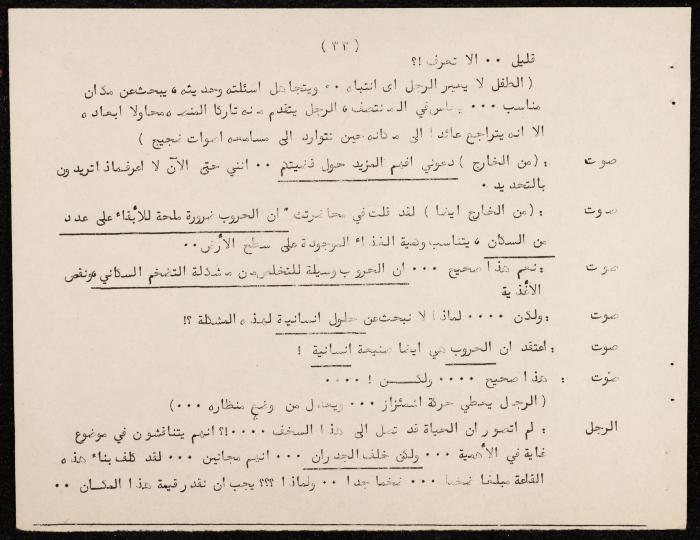 ( ٣٣ )
قليل ٠٠ الا تعرف !؟
( الطفل لا يعير الرجل اى انتباه ٠٠ ويتجاهل اسئلته وحديثه ، يبحث عن مكان
مناسب ٠٠٠ يجلس في المنتصف ، الرجل يتقدم منه تاركا المنصه محاولا ابعاده
الا انه يتراجع عائدا الى مكانه حين تتوارد الى مسامعه اصوات ضجيج )
صوت : ( من الخارج ) دعوني افهم المزيد حول قضيتكم ٠٠ انني حتى الآن لا اعرف ماذا تريدون
بالتحديد ٠
صوت : ( من الخارج ايضا ) لقد قلت في محاضرتك " ان الحروب ضرورة ملحة للأبقاء على عدد
من السكان ، يتناسب وكمية الغذاء الموجودة على سطح الأرض ٠٠
صوت : نعم هذا صحيح ٠٠٠ ان الحروب وسيلة للتخلص من مشكلة التضخم السكاني ونقص
الأغذية
صوت : ولكن ٠٠٠٠ لماذا لا نبحث عن حلول انسانية لهذه المشكلة ؟!
صوت : اعتقد ان الحروب هي ايضا صنيعة انسانية !
صوت : هذا صحيح ٠٠٠٠ ولكـــن ! ٠٠٠٠
( الرجل يعطي حركة اشمئزاز ٠٠٠ ويعدل من وضع منظاره ٠٠٠ )
الرجل : لم اتصور ان الحياة قد تصل الى هذا السخف ٠٠٠٠!؟ انهم يتناقشون في موضوع
غاية في الأهمية ٠٠٠ ولكن خلف الجدران ٠٠٠ انهم مجانين ٠٠٠ لقد كلف بناء هذه
القاعة مبلغا ضخما ٠٠٠ ضخما جدا ٠٠ ولماذا ؟؟؟ يجب ان نقدر قيمة هذا المكان ٠٠